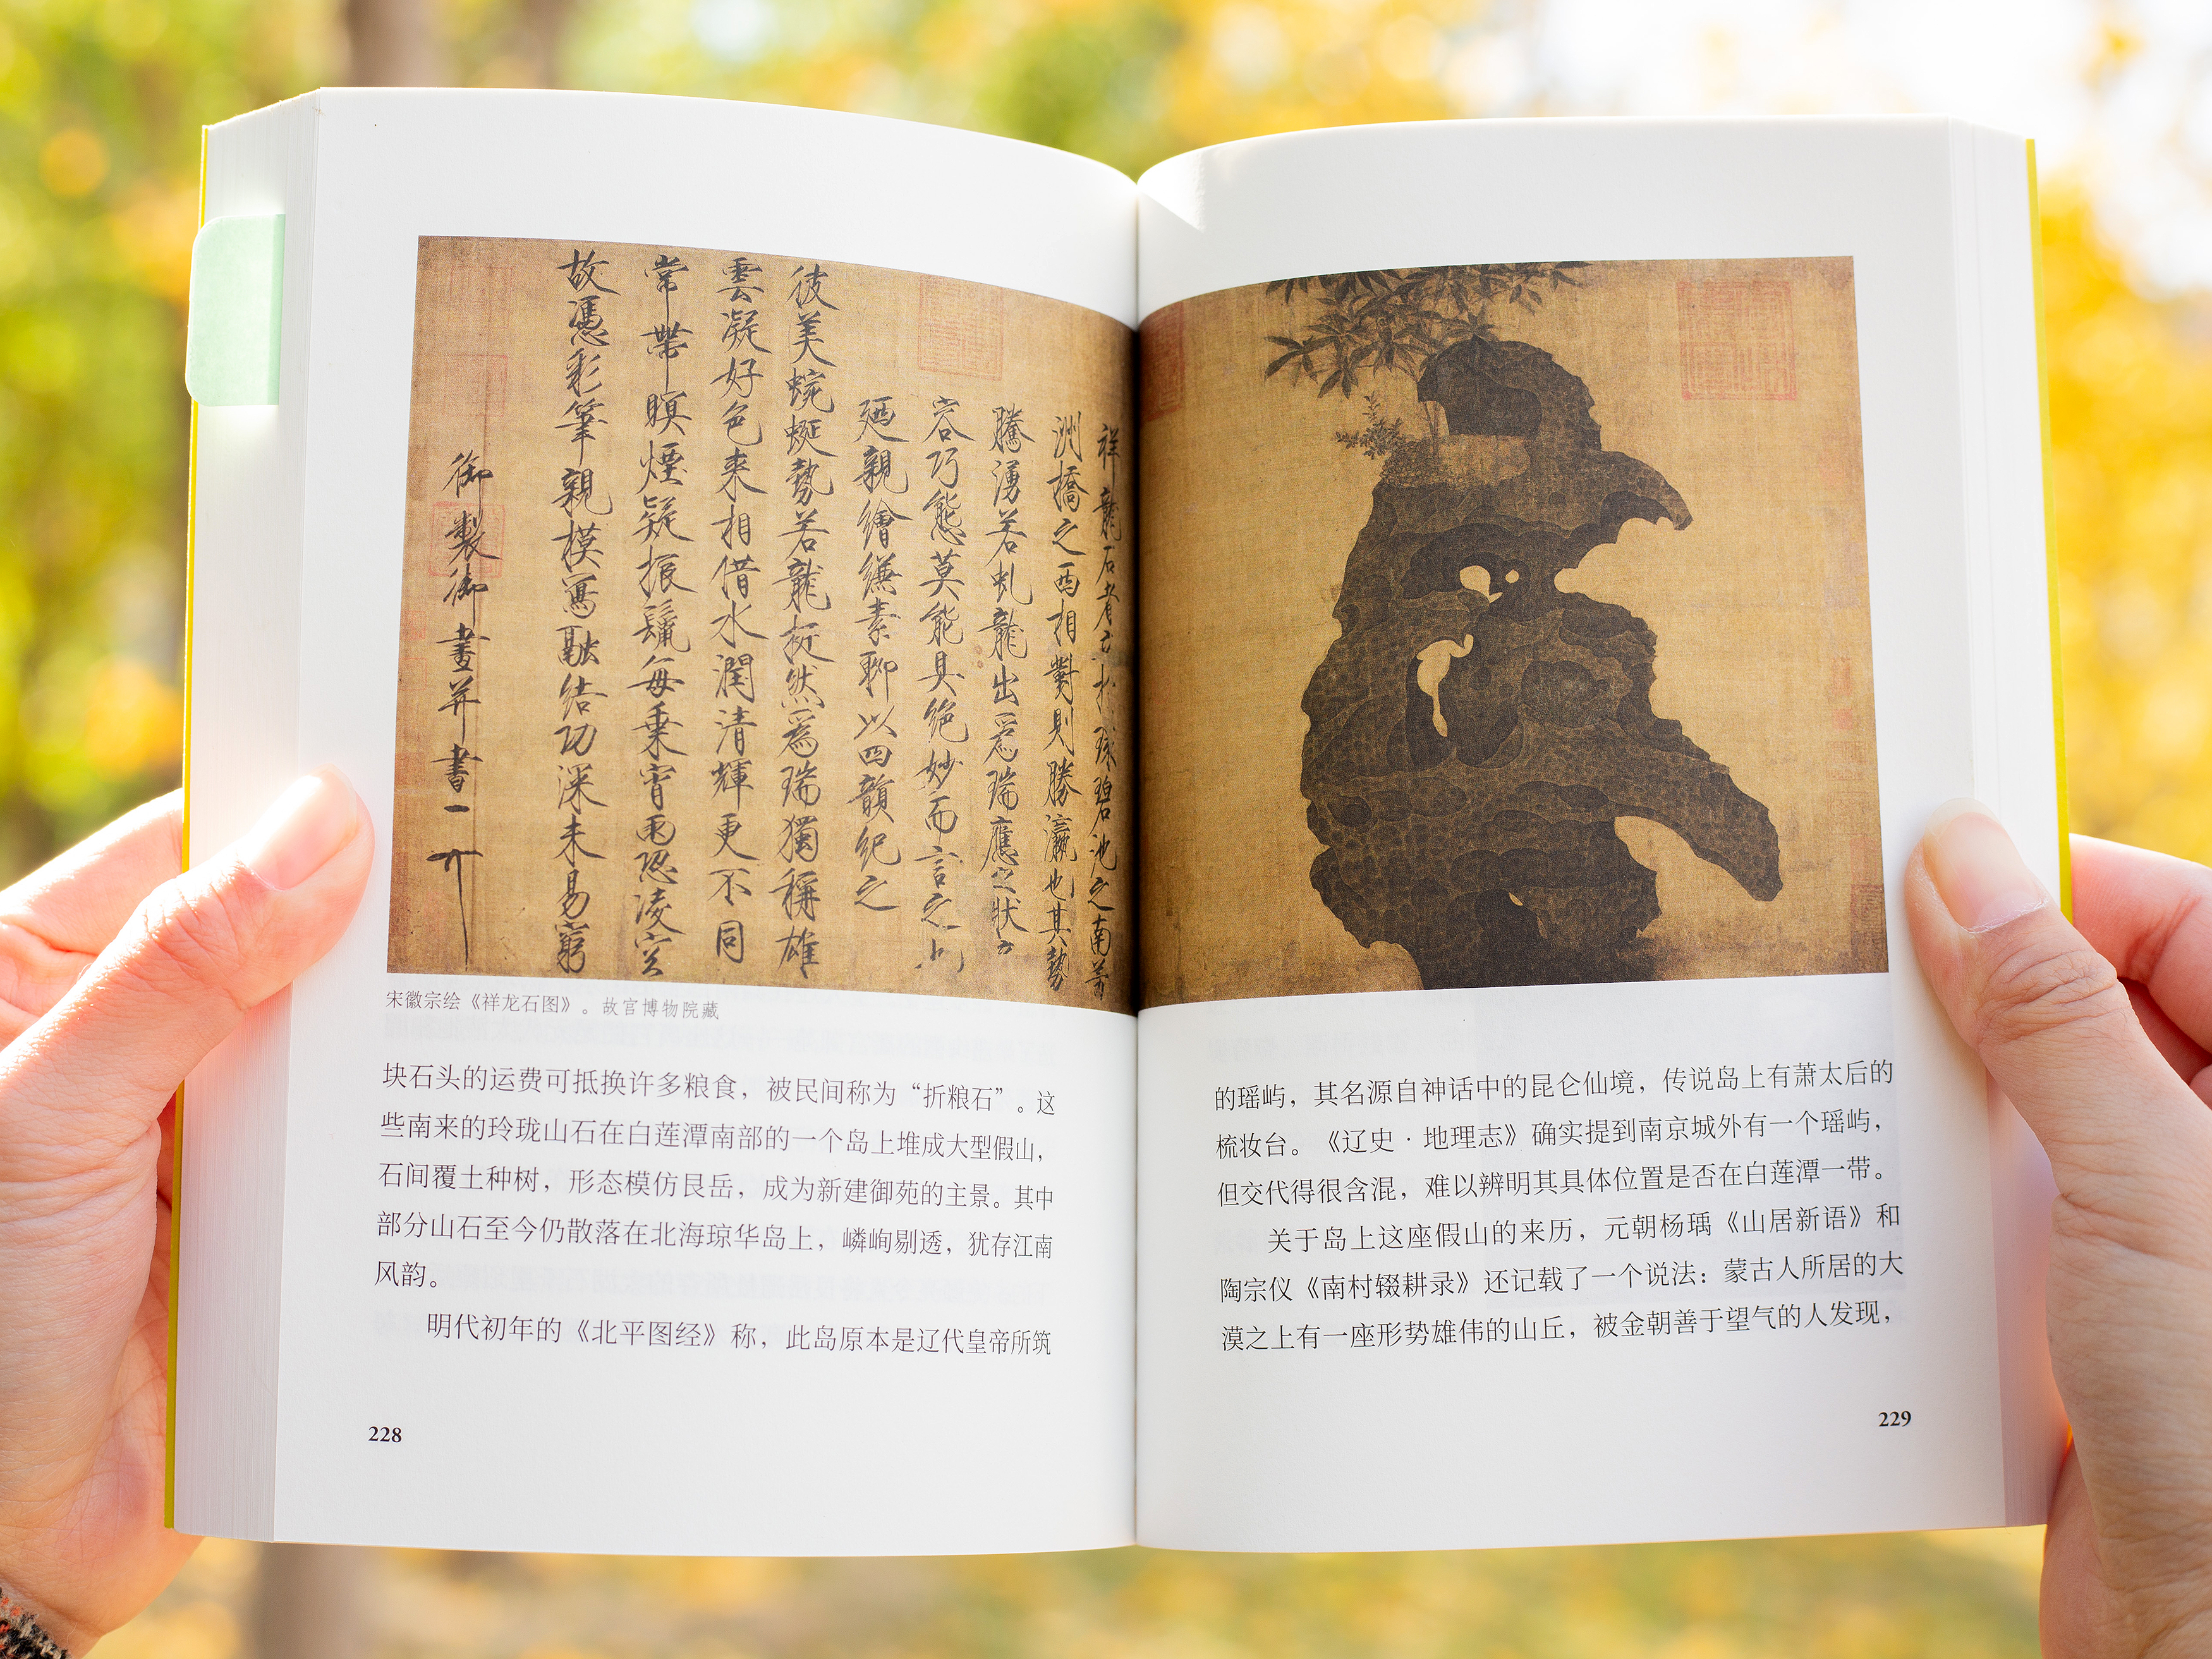 祥龍石者立於環碧池之南芳
洲橋之西相對則勝瀛也其勢
騰湧若虬龍出爲瑞應之狀奇
容巧態莫能具絕妙而言之也
廼親繪縑素聊以四韻紀之
彼美蜿蜒勢若龍挺然爲瑞獨稱雄
雲凝好色来相借水潤清輝更不同
常帶暝煙疑振鬣每乗宵雨恐凌空
故憑彩筆親模寫融結功深未易窮
御製御畫并書
宋徽宗绘《祥龙石图》。故宫博物院藏
块石头的运费可抵换许多粮食，被民间称为“折粮石”。这
些南来的玲珑山石在白莲潭南部的一个岛上堆成大型假山，
石间覆土种树，形态模仿艮岳，成为新建御苑的主景。其中
部分山石至今仍散落在北海琼华岛上，嶙峋剔透，犹存江南
风韵。
明代初年的《北平图经》称，此岛原本是辽代皇帝所筑
228
的瑶屿，其名源自神话中的昆仑仙境，传说岛上有萧太后的
梳妆台。《辽史·地理志》确实提到南京城外有一个瑶屿，
但交代得很含混，难以辨明其具体位置是否在白莲潭一带。
关于岛上这座假山的来历，元朝杨瑀《山居新语》和
陶宗仪《南村辍耕录》还记载了一个说法：蒙古人所居的大
漠之上有一座形势雄伟的山丘，被金朝善于望气的人发现，
229